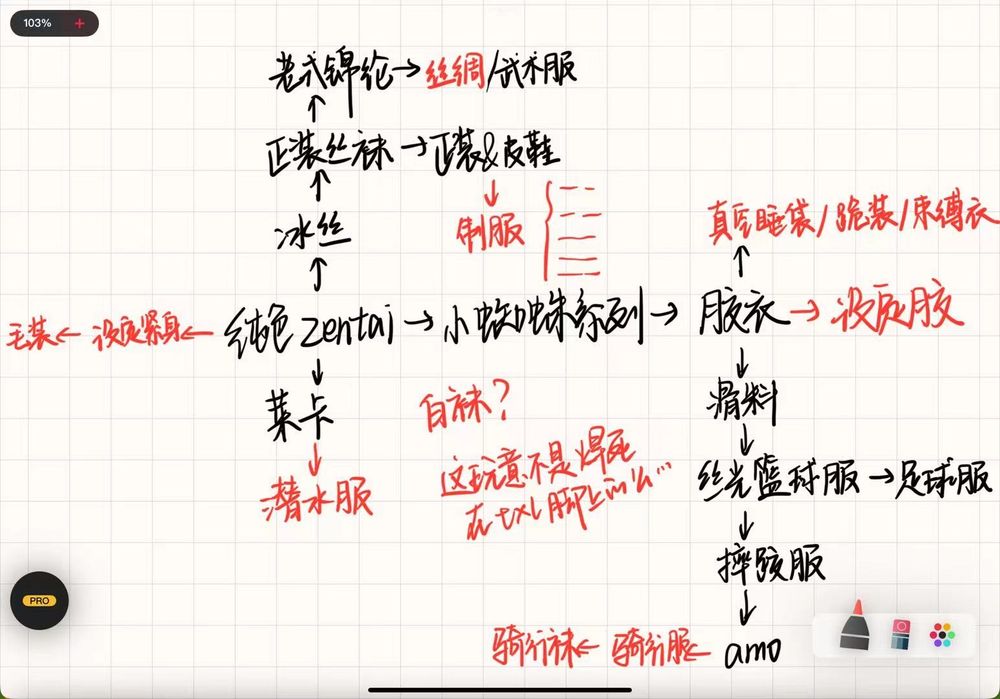 103% +
老式锦纶→丝绸/武术服
↑
正装丝袜→正装&皮鞋
↑ ↓
冰丝 制服
真空睡袋/跪装/束缚衣
↑ ↑
毛装← 设定紧身← 纯色zentai→小蜘蛛系列→胶衣→设定胶
↓ ↓
莱卡 白袜? 滑料
↓ ↓
潜水服 这玩意不是焊死 丝光篮球服→足球服
在txl脚上的么…
↓
摔跤服
PRO
↓
骑行袜← 骑行服← amo